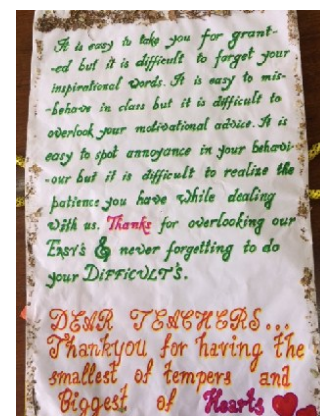 It is easy to take you for grant-
-ed but it is difficult to forget your
inspirational words. It is easy to mis-
-behave in class but it is difficult to
overlook your motivational advice. It is
easy to spot annoyance in your behavi-
-our but it is difficult to realize the
patience you have while dealing
with us. Thanks for overlooking our
EASY'S & never forgetting to do
your DIFFICULT'S.
DEAR TEACHERS...
Thankyou for having the
smallest of tempers and
Biggest of Hearts